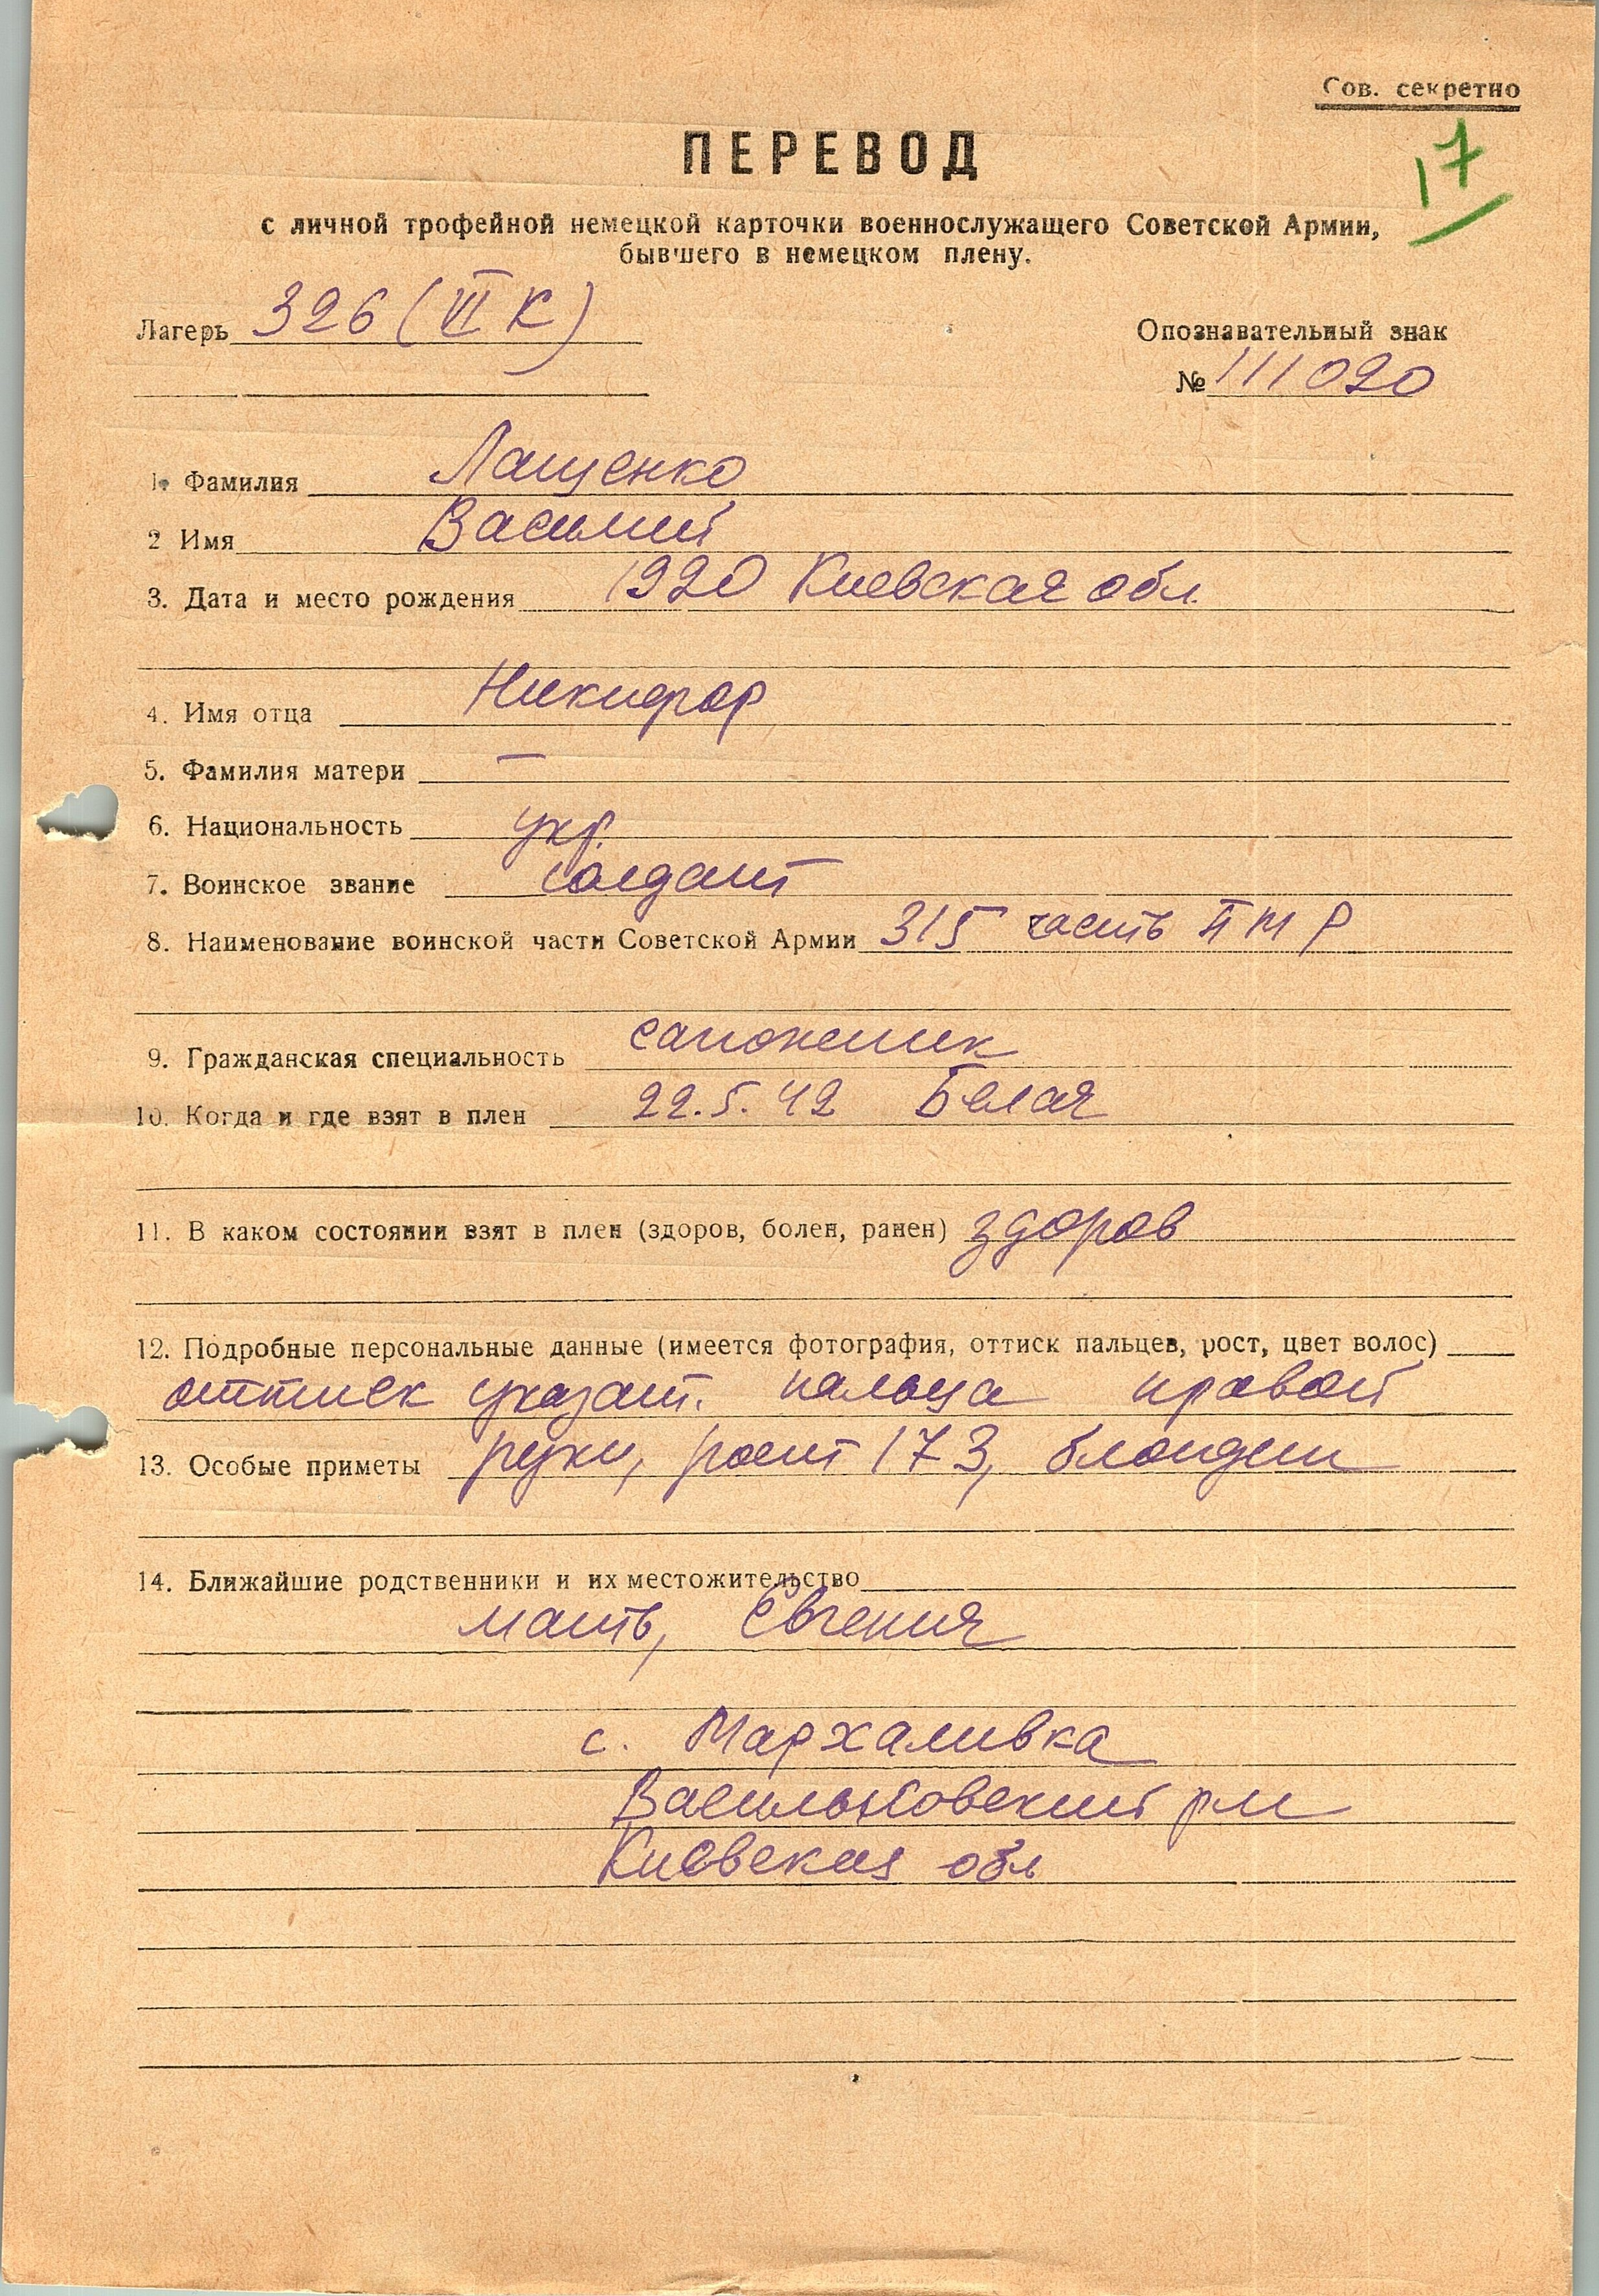 Сов. секретно
17
ПЕРЕВОД
с личной трофейной немецкой карточки военнослужащего Советской Армии,
бывшего в немецком плену.
Лагерь 326 (VI К)
Опознавательный знак
№ 111020
1. Фамилия Лащенко
2 Имя Василий
3. Дата и место рождения 1920 Киевская обл.
4. Имя отца Никифор
5. Фамилия матери —
6. Национальность укр.
7. Воинское звание солдат
8. Наименование воинской части Советской Армии 315 часть П М Р
9. Гражданская специальность сапожник
10. Когда и где взят в плен 22.5.42 Белая
11. В каком состоянии взят в плен (здоров, болен, ранен) здоров
12. Подробные персональные данные (имеется фотография, оттиск пальцев, рост, цвет волос)
оттиск указат. пальца правой
13. Особые приметы руки, рост 173, блондин
14. Ближайшие родственники и их местожительство
мать, Евгения
с. Мархаливка
Васильковский р-н
Киевская обл